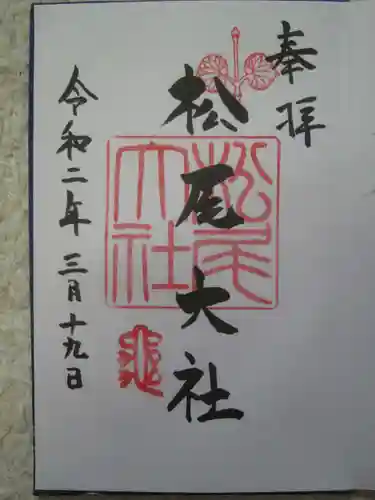 奉拝
松尾大社
松尾大社
令和二年三月十九日